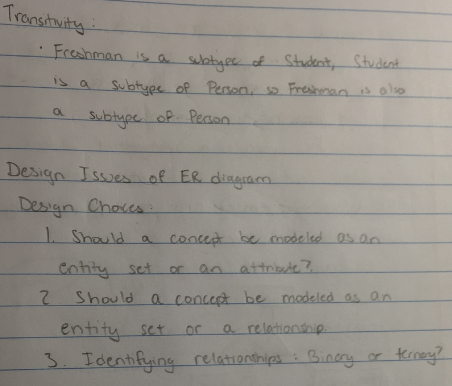 Transitivity:
· Freshman is a subtype of Student, Student
is a subtype of Person, so Freshman is also
a subtype of Person
Design Issues of ER diagram
Design Choices:
1. Should a concept be modeled as an
entity set or an attribute?
2 Should a concept be modeled as an
entity set or a relationship.
3. Identifying relationships: Binary or ternary?